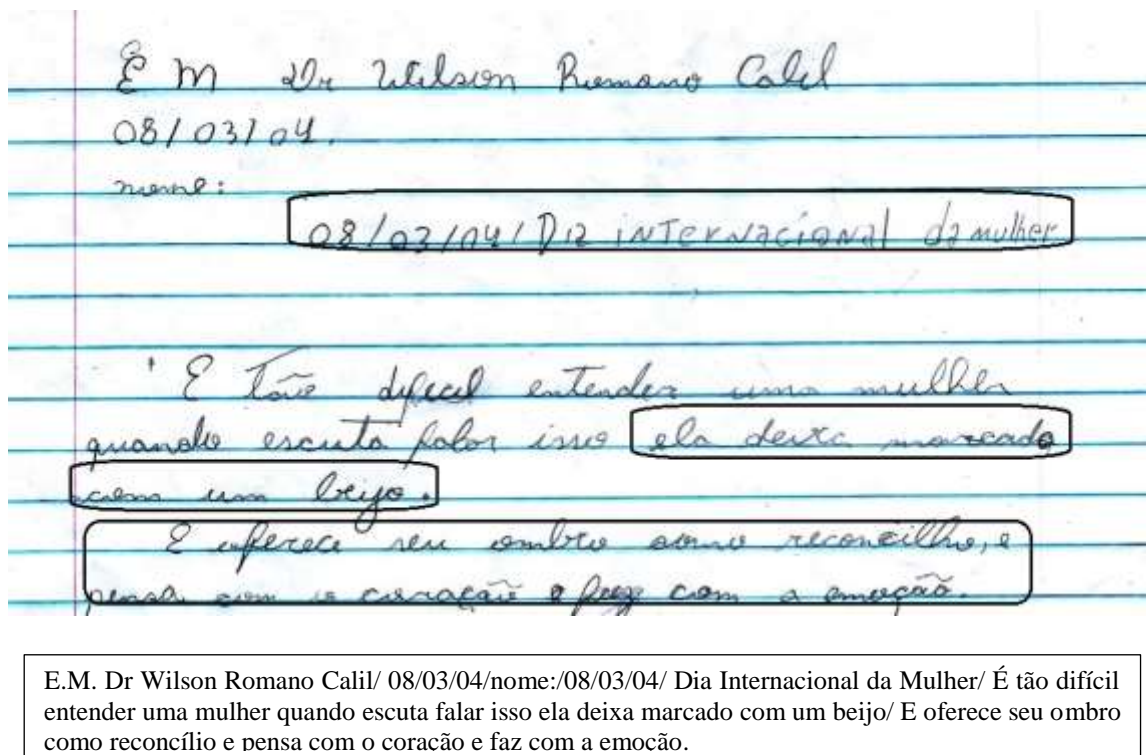 E M Dr Wilson Romano Calil
08/03/04.
nome:
08/03/04/ Dia internacional da mulher
E tão difical entender uma mulher
quando escuta falar isso ela deixa marcado
com um beijo.
E oferece seu ombro como reconcilho, e
pensa com o coração e faz com a emoção.
E.M. Dr Wilson Romano Calil/ 08/03/04/nome:/08/03/04/ Dia Internacional da Mulher/ É tão difícil
entender uma mulher quando escuta falar isso ela deixa marcado com um beijo/ E oferece seu ombro
como reconcílio e pensa com o coração e faz com a emoção.